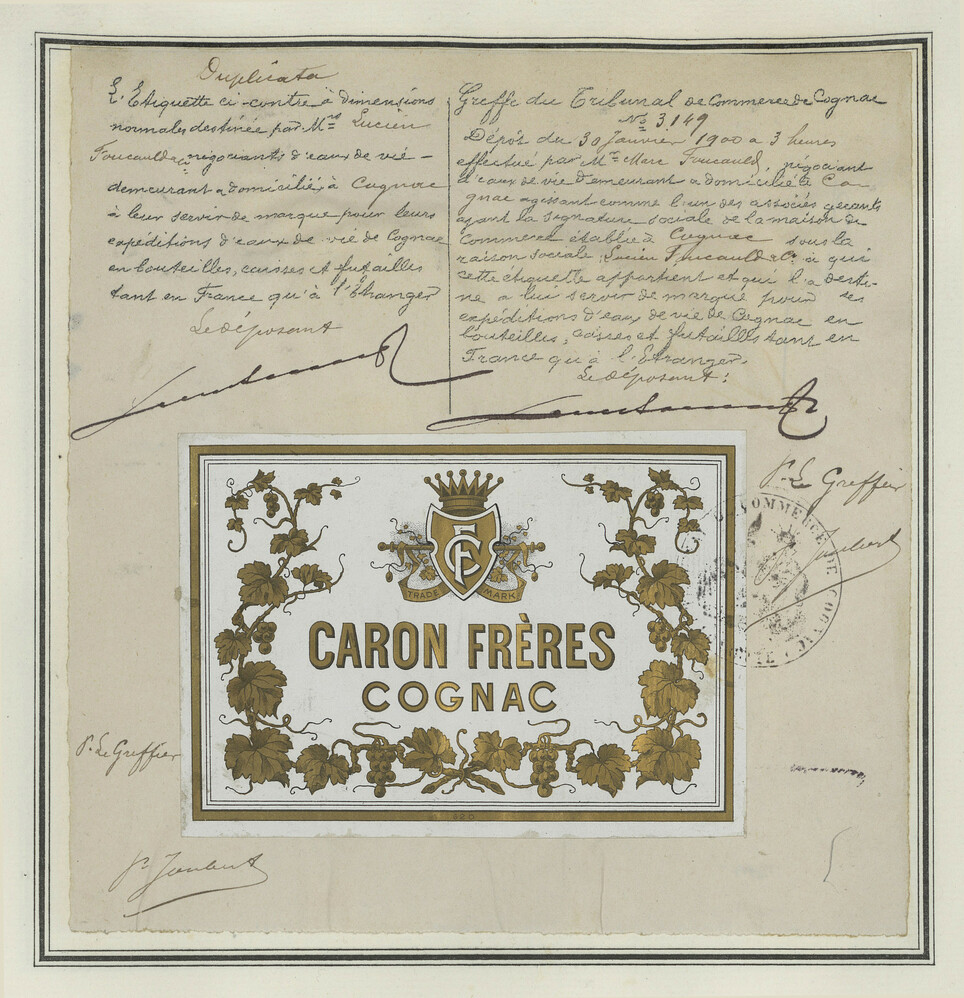 Duplicata
L'Etiquette ci-contre à dimensions
normales destinée par Mrs Lucien
Foucauld & Cie négociants d'eaux de vie –
demeurant & domiciliés à Cognac
à leur servir de marque pour leurs
expéditions d'eaux de vie de Cognac
en bouteilles, caisses et futailles
tant en France qu'à l'Etranger
Le déposant
Greffe du Tribunal de Commerce de Cognac
No 3.149
Dépôt du 30 Janvier 1900 à 3 heures
effectué par Mr Marc Foucauld, négociant
d'eaux de vie demeurant & domicilié à Co-
gnac agissant comme l'un des associés gérants
ayant la signature sociale de la maison de
Commerce établie à Cognac sous la
raison sociale Lucien Foucauld & Cie à qui
cette étiquette appartient et qui l'a desti-
née à lui servir de marque pour ses
expéditions d'eaux de vie de Cognac en
bouteilles, caisses et futailles tant en
France qu'à l'Etranger.
Le déposant :
P. Le Greffier
Joubert
COMMERCE DE COGNAC
TRADE MARK
CARON FRÈRES
COGNAC
820
P. Le Greffier
P. Joubert